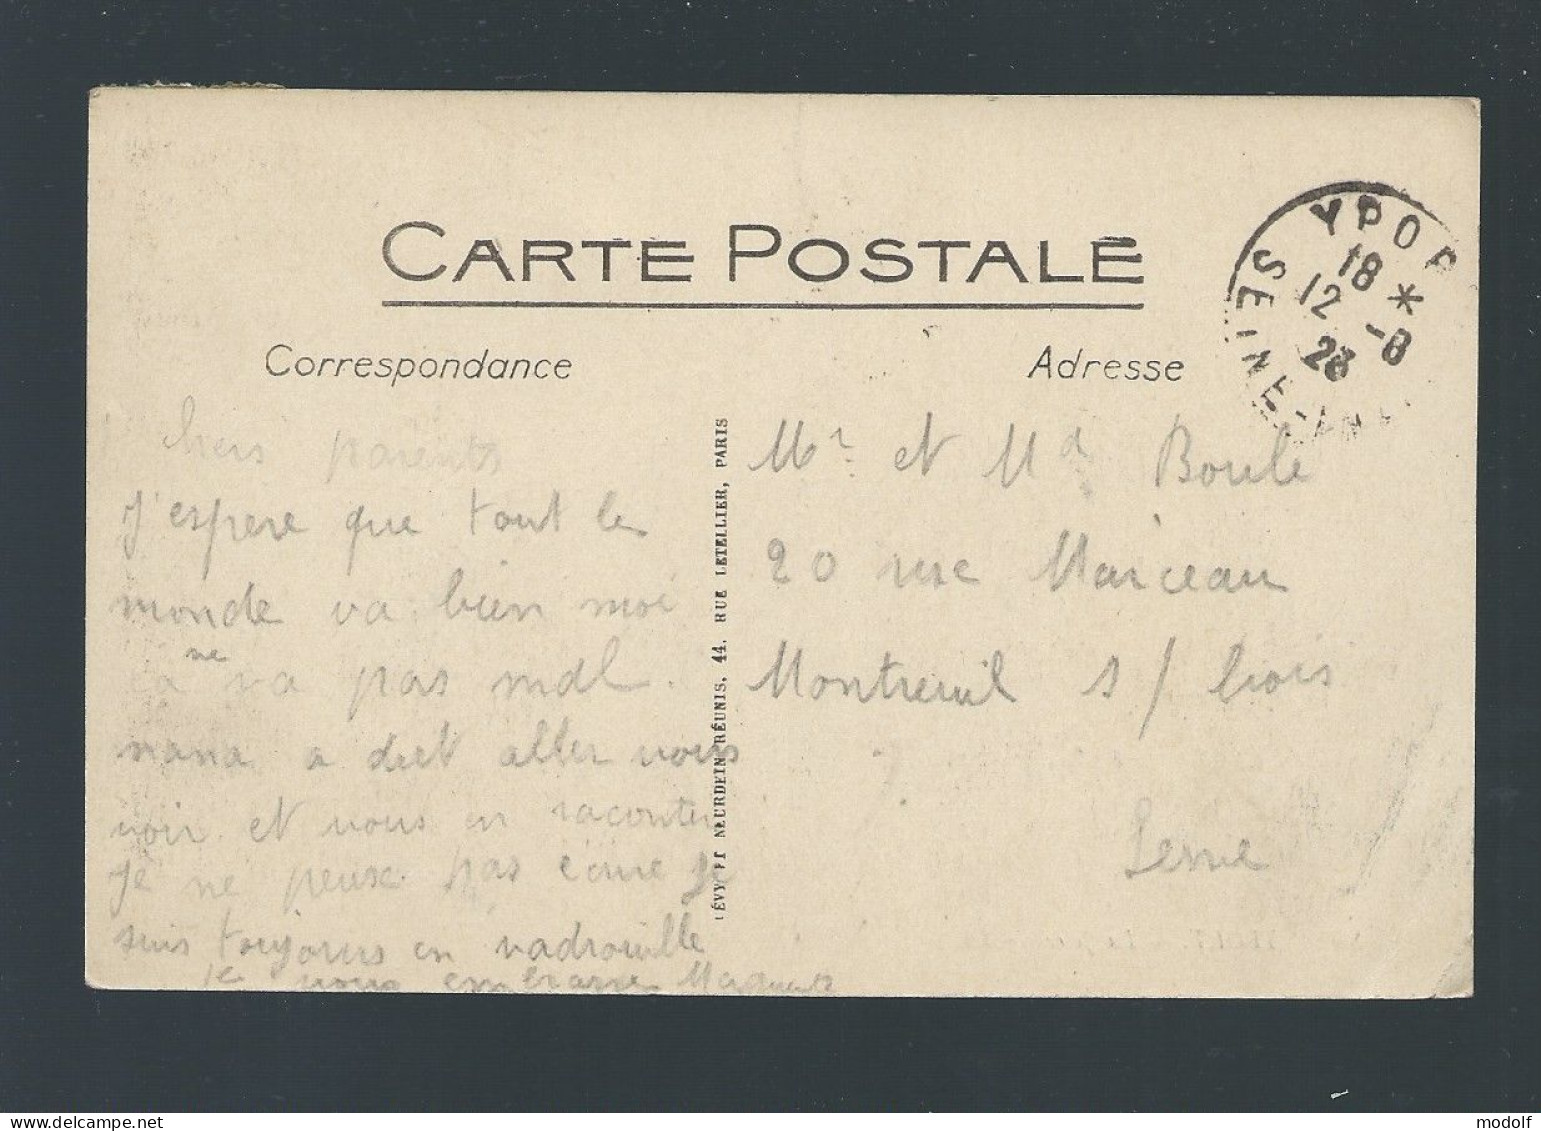 CARTE POSTALE
Correspondance
Adresse
YPOR
18 *
12 -8
SEINE-IN
chers parents
J'espere que tout le
monde va bien moi
ne
ça va pas mal.
nana a duet aller vous
voir et vous en raconter
je ne peux pas ecrire je
suis toujours en vadrouille
je vous embrasse Marguerite
LÉVY ET NEURDEIN RÉUNIS, 44, RUE LETELLIER, PARIS
Mr et Md Boule
20 rue Marceau
Montreuil s/ bois
Seine
www.delcampe.net
modolf